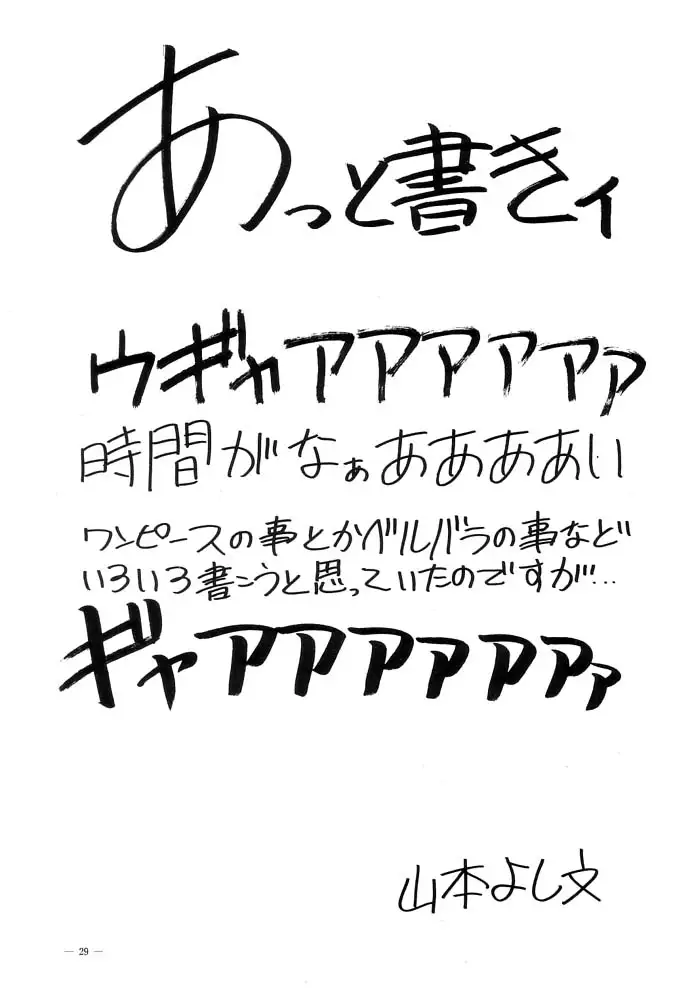 あっと書きィ
ウギャアアアアァァ
時間がなぁああああい
ワンピースの事とかベルバラの事など
いろいろ書こうと思っていたのですが…
ギャアアアァァアァァ
山本よし文
— 29 —